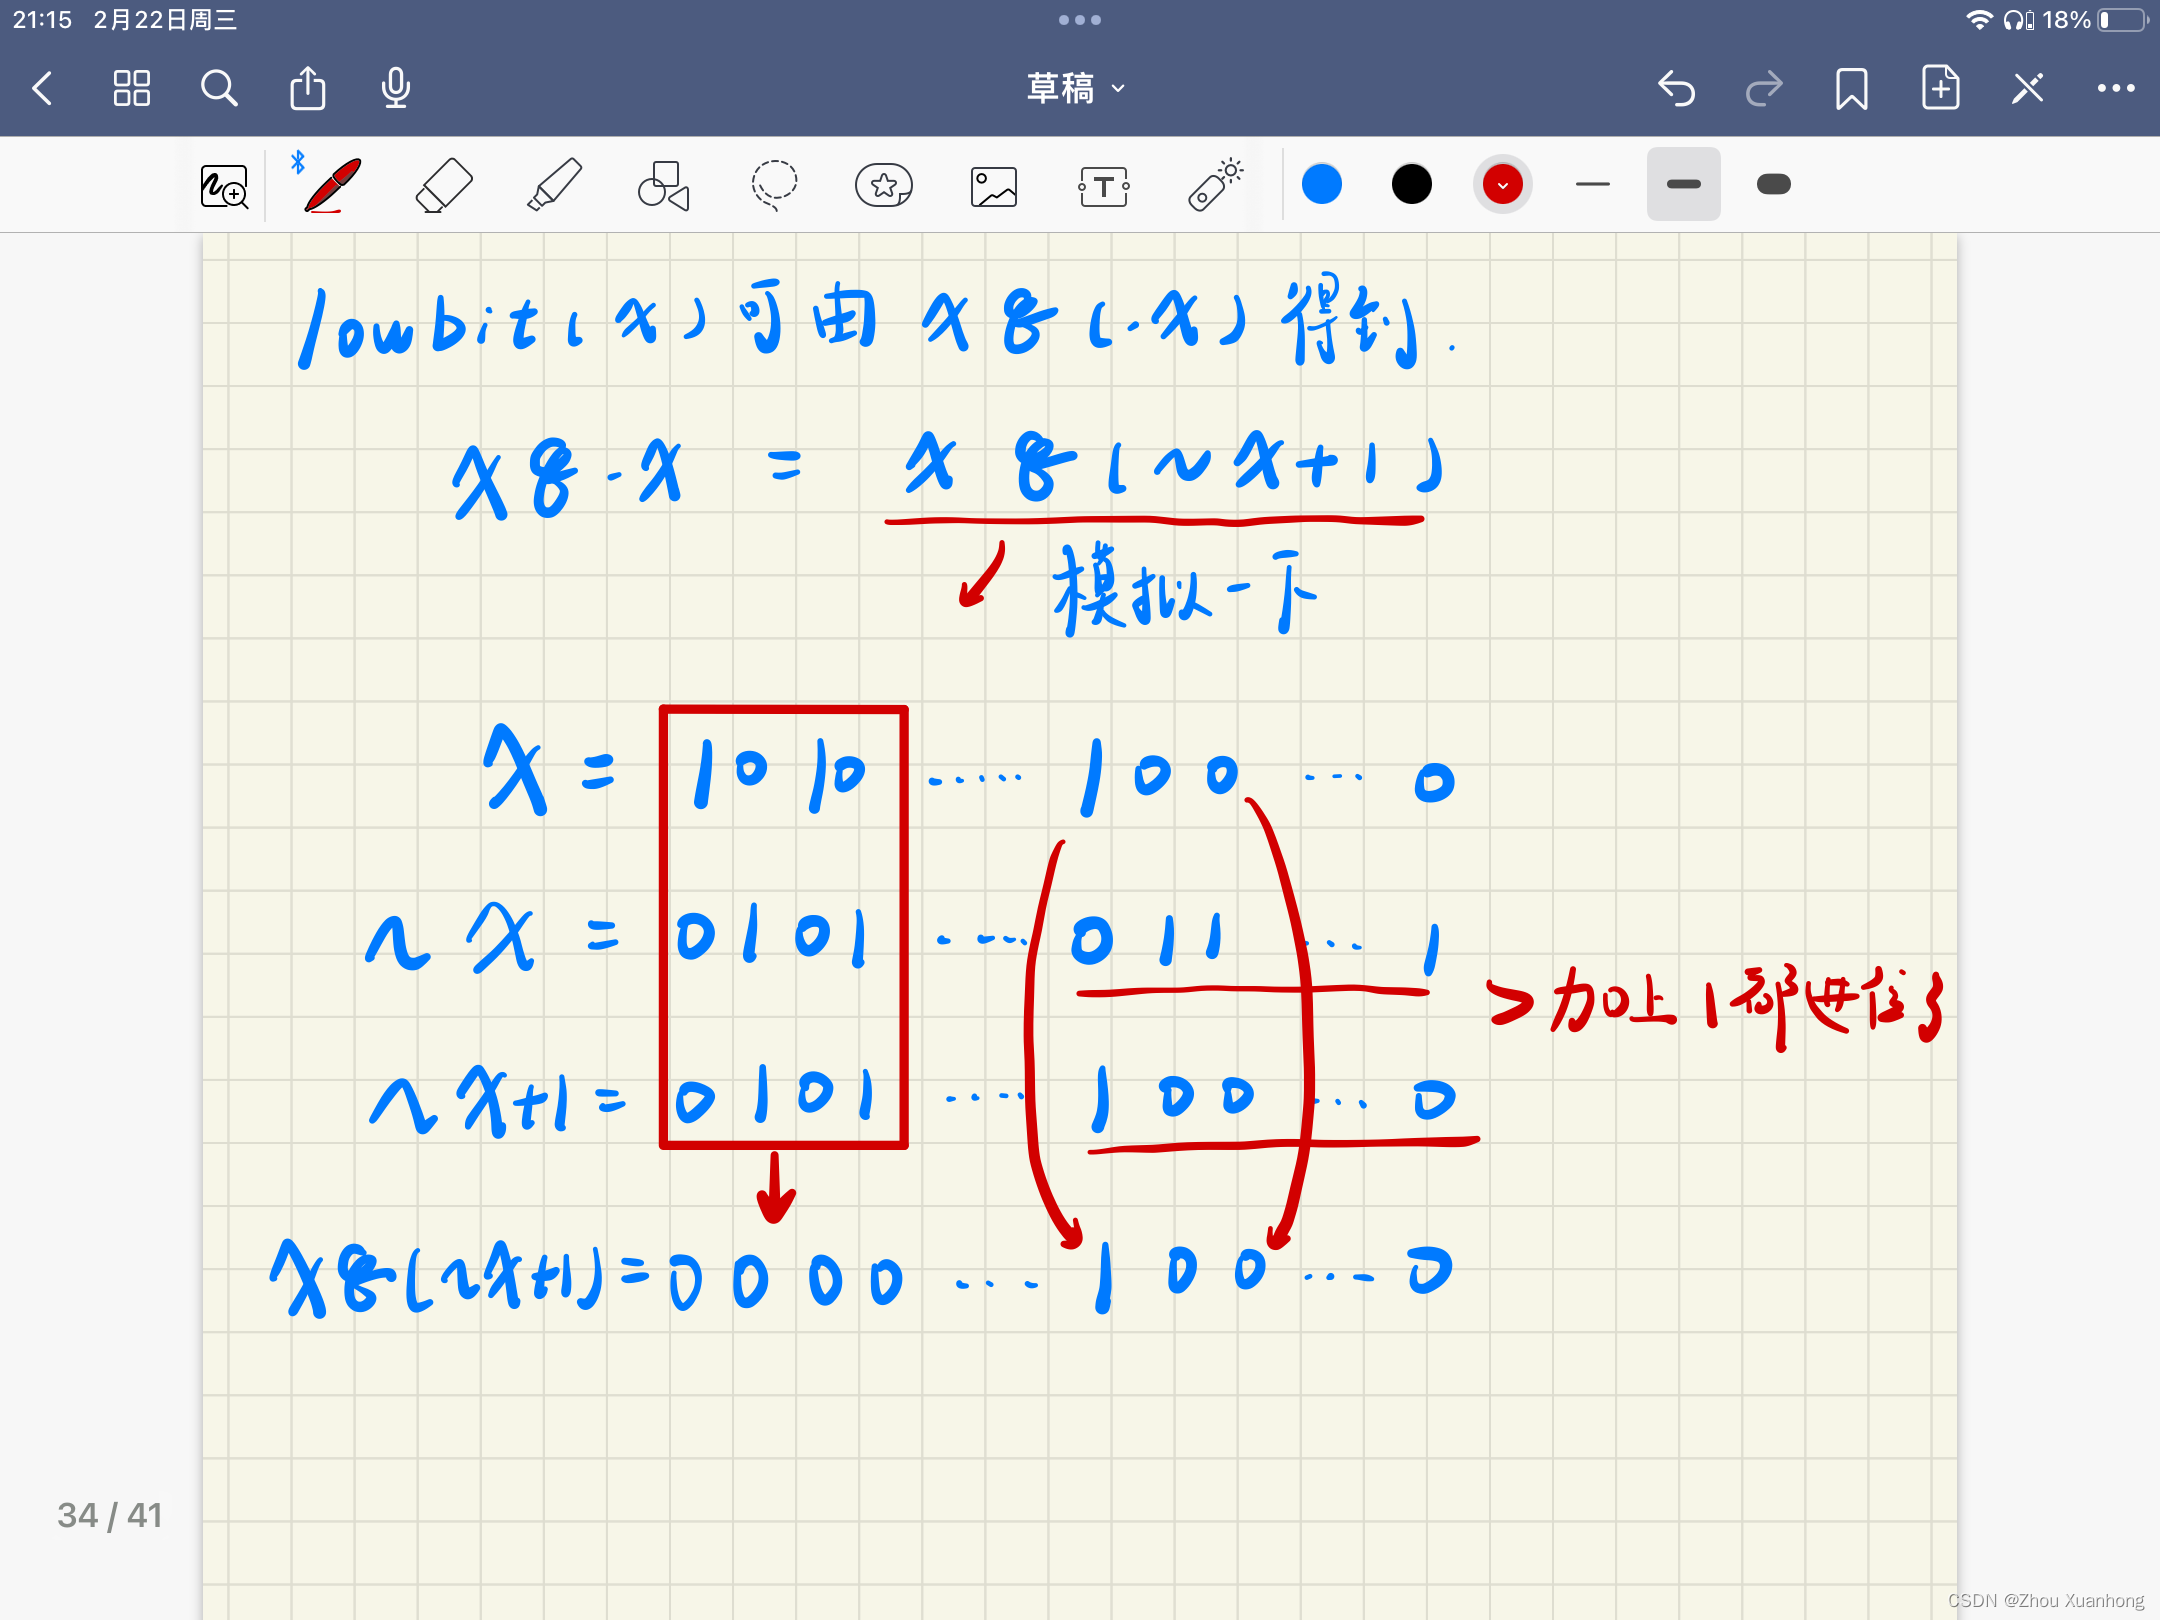 21:15 2月22日周三
18%
草稿
T
lowbit(x)可由x&(-x)得到.
x&-x = x&(~x+1)
模拟一下
x = 1010 ...... 100 ... 0
~x = 0101 ..... 011 ... 1 > 加上1都进位了
~x+1 = 0101 ..... 100 ... 0
x&(~x+1) = 0000 ... 100 ... 0
34 / 41
CSDN @Zhou Xuanhong